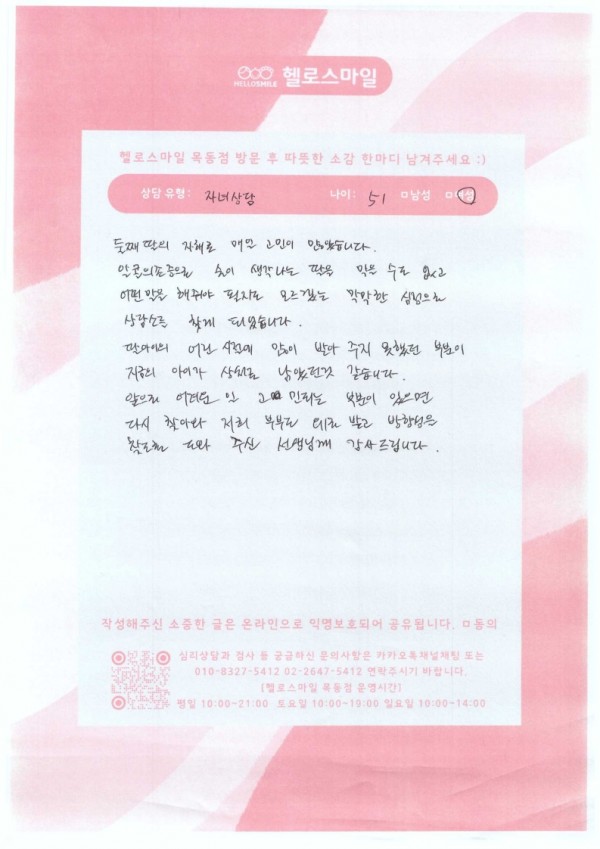 eco
HELLOSMILE 헬로스마일
헬로스마일 목동점 방문 후 따뜻한 소감 한마디 남겨주세요 :)
상담 유형: 자녀상담 나이: 51 □남성 □여성
둘째 딸의 자해로 매번 고민이 많았습니다.
알콜의존증으로 술이 생각나는 딸을 막을 수도 없고
어떤 말을 해줘야 될지도 모르겠는 막막한 심정으로
상담소를 찾게 되었습니다.
딸아이의 어린 시절에 많이 받아 주지 못했던 부분이
지금의 아이가 상처로 남았던것 같습니다.
앞으로 어려운 일 고민되는 부분이 있으면
다시 찾아와 저희 부부도 테라 받고 방향성을
주신 선생님께 감사드립니다.
작성해주신 소중한 글은 온라인으로 익명보호되어 공유됩니다. □동의
심리상담과 검사 등 궁금하신 문의사항은 카카오톡채널채팅 또는
010-8327-5412 02-2647-5412 연락주시기 바랍니다.
[헬로스마일 목동점 운영시간]
평일 10:00~21:00 토요일 10:00~19:00 일요일 10:00~14:00